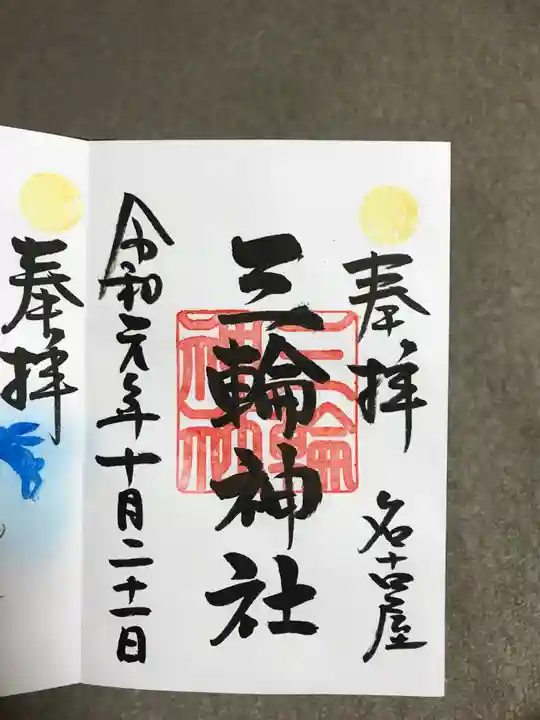 奉拝 名古屋
三輪神社
三輪神社
令和元年十月二十一日
奉拝